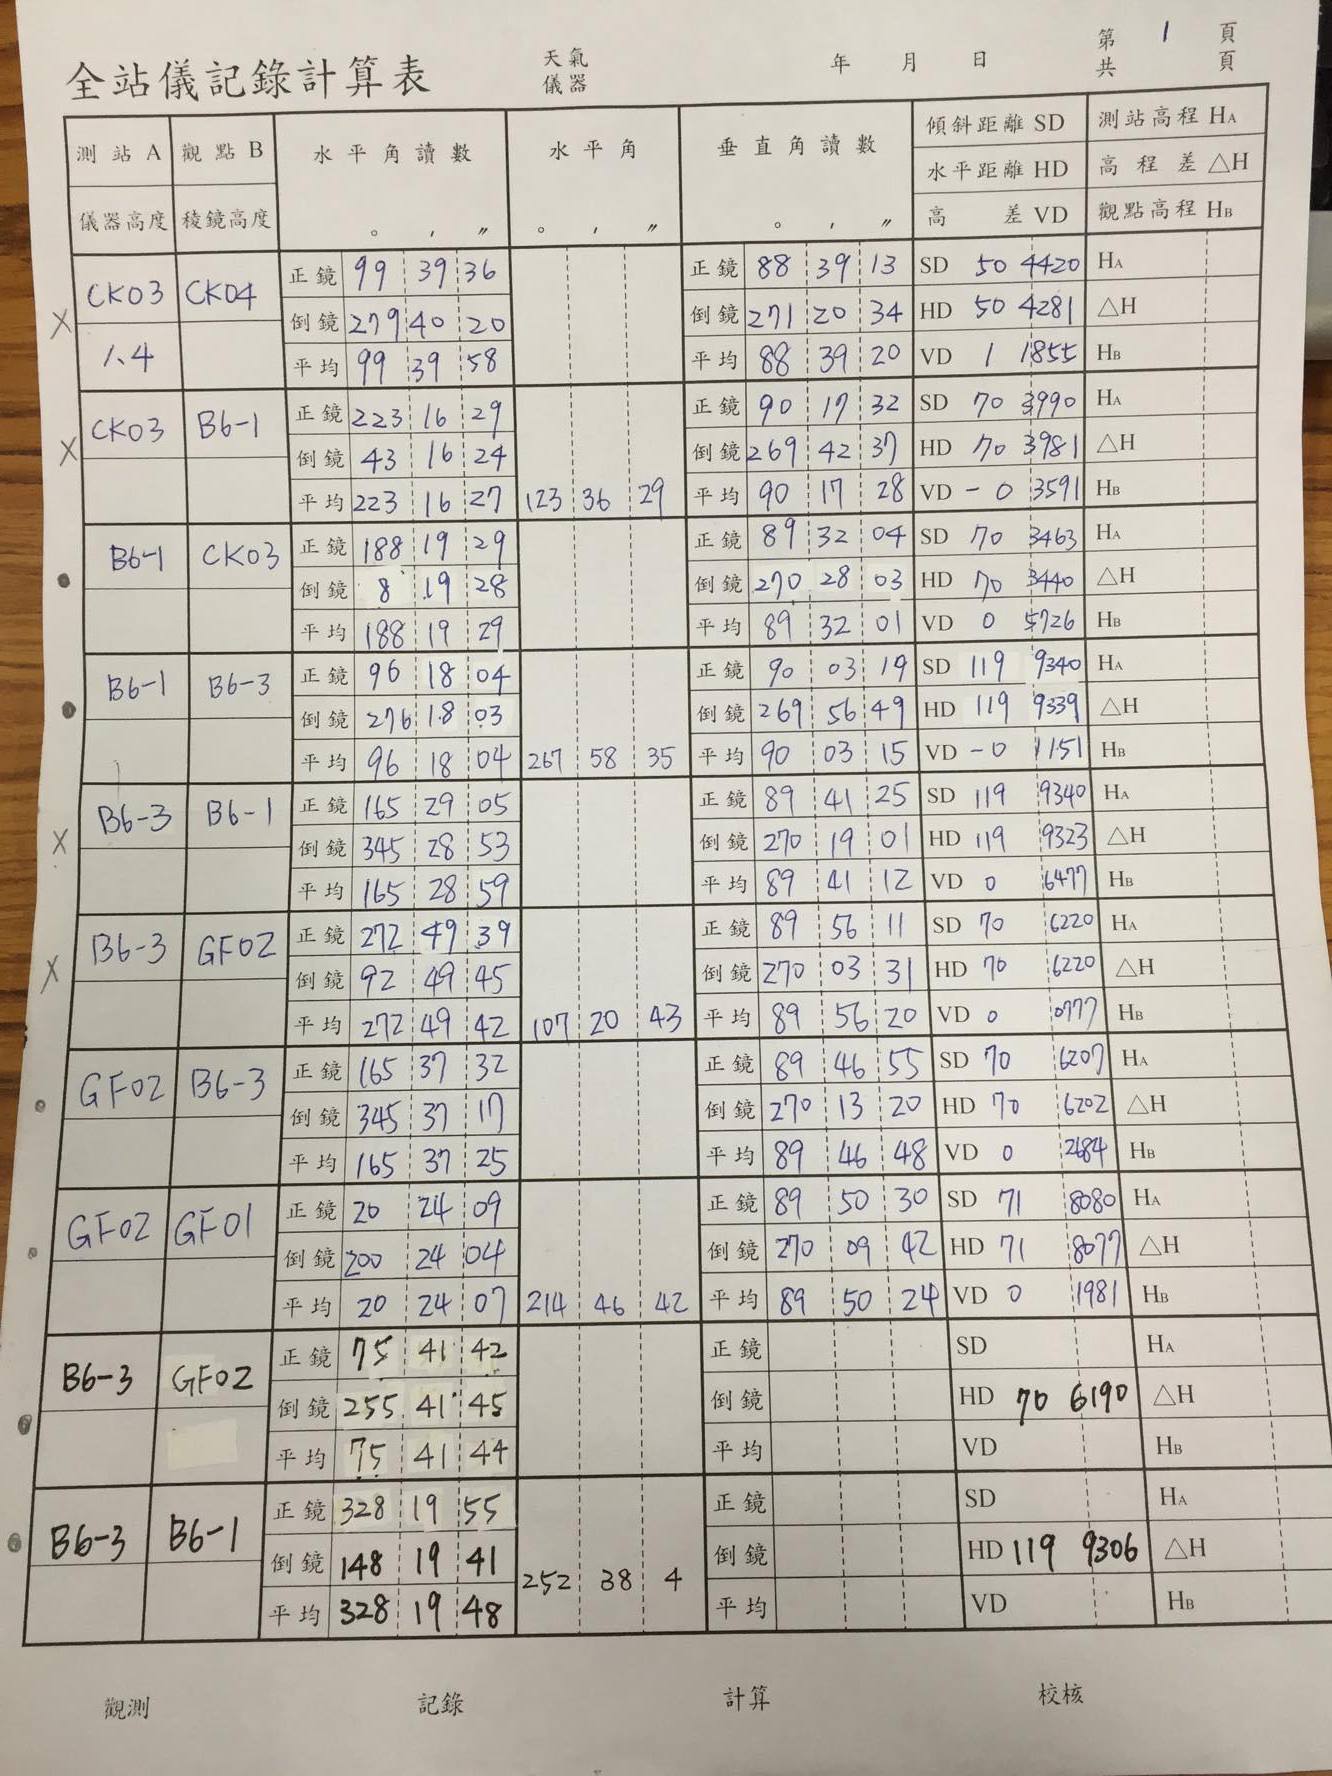 第 1 頁
共 頁
全站儀記錄計算表 天氣 年 月 日
儀器
測站A 觀點B 水平角讀數 水平角 垂直角讀數 傾斜距離 SD 測站高程 HA
水平距離 HD 高程差 △H
儀器高度 稜鏡高度 ° ′ ″ ° ′ ″ ° ′ ″ 高差 VD 觀點高程 HB
CK03 CK04 正鏡 99 39 36 正鏡 88 39 13 SD 50 4420 HA
倒鏡 279 40 20 倒鏡 271 20 34 HD 50 4281 △H
1.4 平均 99 39 58 平均 88 39 20 VD 1 1855 HB
CK03 B6-1 正鏡 223 16 29 正鏡 90 17 32 SD 70 3990 HA
倒鏡 43 16 24 倒鏡 269 42 37 HD 70 3981 △H
平均 223 16 27 123 36 29 平均 90 17 28 VD -0 3591 HB
B6-1 CK03 正鏡 188 19 29 正鏡 89 32 04 SD 70 3463 HA
倒鏡 8 19 28 倒鏡 270 28 03 HD 70 3440 △H
平均 188 19 29 平均 89 32 01 VD 0 5726 HB
B6-1 B6-3 正鏡 96 18 04 正鏡 90 03 19 SD 119 9340 HA
倒鏡 276 18 03 倒鏡 269 56 49 HD 119 9339 △H
平均 96 18 04 267 58 35 平均 90 03 15 VD -0 1151 HB
B6-3 B6-1 正鏡 165 29 05 正鏡 89 41 25 SD 119 9340 HA
倒鏡 345 28 53 倒鏡 270 19 01 HD 119 9323 △H
平均 165 28 59 平均 89 41 12 VD 0 6477 HB
B6-3 GF02 正鏡 272 49 39 正鏡 89 56 11 SD 70 6220 HA
倒鏡 92 49 45 倒鏡 270 03 31 HD 70 6220 △H
平均 272 49 42 107 20 43 平均 89 56 20 VD 0 0777 HB
GF02 B6-3 正鏡 165 37 32 正鏡 89 46 55 SD 70 6207 HA
倒鏡 345 37 17 倒鏡 270 13 20 HD 70 6202 △H
平均 165 37 25 平均 89 46 48 VD 0 2684 HB
GF02 GF01 正鏡 20 24 09 正鏡 89 50 30 SD 71 8080 HA
倒鏡 200 24 04 倒鏡 270 09 42 HD 71 8077 △H
平均 20 24 07 214 46 42 平均 89 50 24 VD 0 1981 HB
B6-3 GF02 正鏡 75 41 42 正鏡 SD HA
倒鏡 255 41 45 倒鏡 HD 70 6190 △H
平均 75 41 44 平均 VD HB
B6-3 B6-1 正鏡 328 19 55 正鏡 SD HA
倒鏡 148 19 41 252 38 4 倒鏡 HD 119 9306 △H
平均 328 19 48 平均 VD HB
觀測 記錄 計算 校核